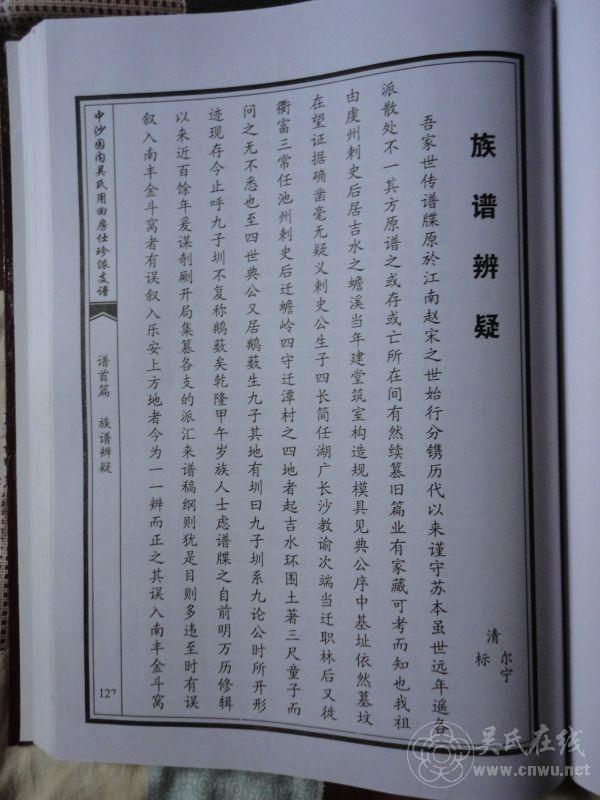 族谱辨疑
清 尔宁
标
吾家世传谱牒原於江南赵宋之世始行分镌历代以来谨守苏本虽世远年遥各
派散处不一其方原谱之或存或亡所在间有然续墓旧篇业有家藏可考而知也我祖
由虔州刺史后居吉水之蟾溪当年建堂筑室构造规模具见典公序中基址依然墓坟
在望证据确凿毫无疑义刺史公生子四长简任湖广长沙教谕次端当迁职林后又徙
衢富三常任池州刺史后迁蟾岭四守迁潭村之四地者起吉水环围土著三尺童子而
问之无不悉也至四世典公又居鹅薮生九子其地有圳曰九子圳系九论公时所开形
迹现存今止呼九子圳不复称鹅薮矣乾隆甲午岁族人士虑谱牒之自前明万历修辑
以来近百馀年爰谋剞劂开局集墓各支的派汇来谱稿纲则犹是目则多违至时有误
叙入南丰金斗窝者有误叙入乐安上方地者今为一一辨而正之其误入南丰金斗窝
中沙园南吴氏用回房仕珍派支谱
谱首篇 族谱辨疑
127
吴氏在线
www.cnwu.net